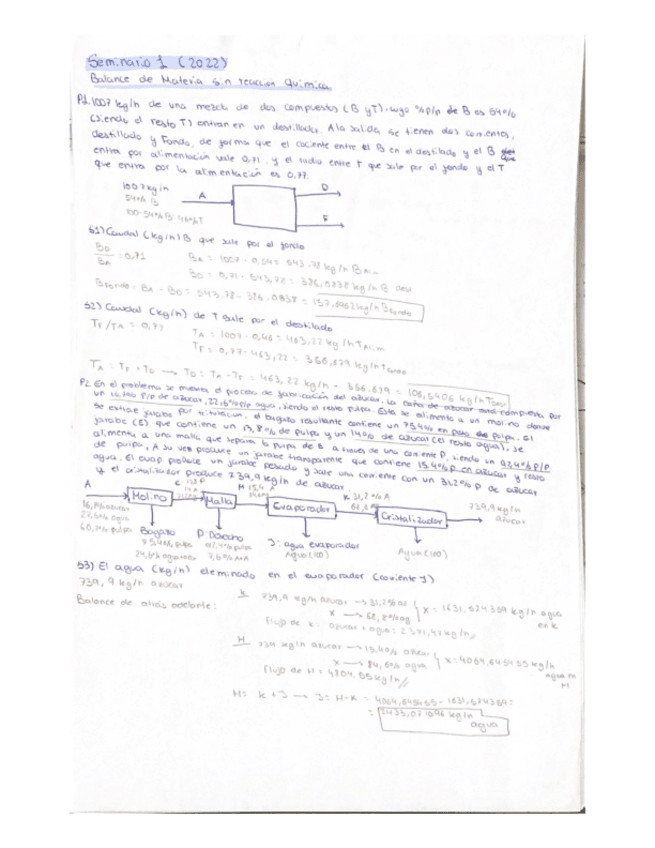 Seminario 1 (2022)
Balance de Materia sin reacción Química
P1. 1007 kg/h de una mezcla de dos compuestos (B y T), cuyo % p/p de B es 54%
(siendo el resto T) entran en un destilador. A la salida se tienen dos corrientes,
destilado y Fondo, de forma que el cociente entre el B en el destilado y el B que
entra por alimentación vale 0,71, y el ratio entre T que sale por el fondo y el T
que entra por la alimentación es 0,77.
1007 kg/h
54% B
100-54% B = 46% T
A
D
F
S1) Caudal (kg/h) B que sale por el fondo
BD/BA = 0,71
BA = 1007 · 0,54 = 543,78 kg/h B Alim.
BD = 0,71 · 543,78 = 386,0838 kg/h B dest
BFondo = BA - BD = 543,78 - 386,0838 = 157,6962 kg/h BFondo
S2) Caudal (kg/h) de T sale por el destilado
TF/TA = 0,77
TA = 1007 · 0,46 = 463,22 kg/h TAlim
TF = 0,77 · 463,22 = 356,679 kg/h TFondo
TA = TF + TD → TD = TA - TF = 463,22 kg/h - 356,679 = 106,5406 kg/h
P2. En el problema se muestra el proceso de fabricación del azúcar. La caña de azúcar compuesta por
un % p/p de azúcar, 22,6% p/p agua, siendo el resto pulpa. Esta se alimenta a un molino donde
se extrae jarabe por trituración, el bagazo resultante contiene un en peso de pulpa. El
jarabe (E) que contiene un 13,8% de pulpa y un 14% de azúcar (el resto agua), se
alimenta a una malla que separa la pulpa de B a través de una corriente P, siendo un % P/P
de pulpa, A su vez produce un jarabe transparente que contiene 15,4% p en azúcar y resto
agua. El evap produce un jarabe pesado y sale una corriente con un 31,2% P de azúcar
y el cristalizador produce 739,9 kg/h de azúcar.
A
Molino
Malla
M 15,4
Evaporador
K 31,2% A
Cristalizador
739,9 kg/h
azúcar
22,6% agua
pulpa
Bagazo
pulpa
pulpa
J: agua evaporador
Agua (100)
Agua (100)
S3) El agua (kg/h) eliminado en el evaporador (corriente J)
739,9 kg/h azúcar
Balance de atrás adelante:
K
739,9 kg/h azúcar → 31,2% az
x → 68,8% ag
x = 1631,624359 kg/h agua
en K
Flujo de K: azúcar + agua = 2371, kg/h
M
739 kg/h azúcar → 15,4% azúcar
x → 84,6% agua
x = 4064,645455 kg/h
agua en
M
Flujo de M = 4804,55 kg/h
M = K + J → J = M - K = 4064,645455 - 1631,624359 =
= 2433,021096 kg/h
agua